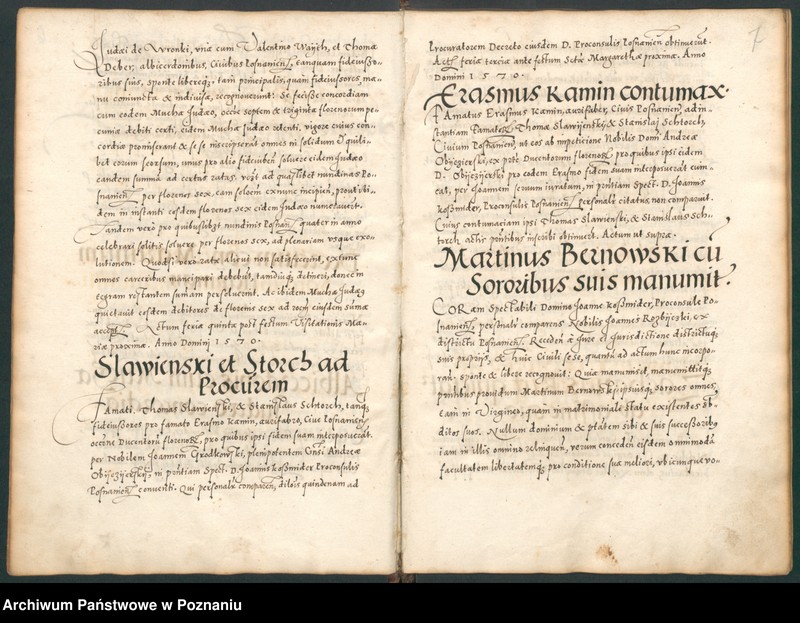 Iudæi de Wronki, vna cum Valentino Waych, et Thoma
Deber, albicerdonibus, Ciuibus Posnanien, tanquam fideiusso-
ribus suis, sponte libereq; tam principalis, quam fideiussores, ma-
nu coniuncta & indiuisa, recognouerunt: Se fecisse concordiam
cum eodem Mucha Iudæo, occe septem & triginta florenorum pe-
cuniæ debiti certi, eidem Mucha Iudæo retenti, vigore cuius con-
cordiæ promiserant & se se inscripserat omnes in solidum & quili-
bet eorum seorsum, unus pro alio fideiuben soluere eidem Iudæo
eandem summā ad certas ratas, vczt ad quaslibet nundinas Po-
snanien per florenos sex, eam soloem exnunc incipien, prout ibi-
dem in instanti eosdem florenos sex eidem Iudæo numerauerūt.
Tandem vero pro quibuslibzt nundinis Posnan quater in anno
celebrari solitis soluere per florenos sex, ad plenariam vsque exo-
lutionem. Quodsi vero ratæ alicui non satisfecerint, extunc
omnes carceribus mancipari debebūt, tamdiuq; detineri, donec in
tegram restantem sumām persoluerint. Ac ibidem Mucha Iudæus
quietauit eosdem debitores de florenis sex ad rōem eiusdem sumæ
accept. Actum feria quinta post festum Visitationis Ma-
riæ proxima. Anno Domini 1570.
Slawienski et Storch ad
Procurem
Famati. Thomas Slawienski, & Stanislaus Schtorch, tanq;
fideiussores pro famato Erasmo Kamin, aurifabro, Ciue Posnanien,
occne Ducentorū florenor, pro quibus ipsi fidem suam interposuerāt.
per Nobilem Ioannem Grodkowski, plenipotentem Gnsi Andreæ
Obiezierskij, in pntiam Spect. D. Ioannis Koszmider Proconsulis
Posnanien conuenti. Qui personalr comparen, dilois quindenam ad
7
Procuratorem Decreto eiusdem D. Proconsulis Posnanien obtinuerūt.
Act feria tertia ante festum Sctæ Margarethæ proxima. Anno
Domini 1570.
Erasmus Kamin contumax.
Famatus Erasmus Kamin, aurifaber, Ciuis Posnanien, ad in-
stantiam Famator Thomæ Slawijenski, & Stanislaj Schtorch,
Ciuium Posnanien, ut eos ab impeticione Nobilis Domi Andreæ
Obyezierski, ex parte Ducentorum florenor, pro quibus ipsi eidem
D. Obyezijerski pro eodem Erasmo fidem suam interposuerāt euin-
cat, per Ioannem seruum iuratum, in pntiam Spect. D. Ioannis
Koszmider, Proconsulis Posnanien personalr citatus non comparuit.
Cuius contumaciam ipsi Thomas Slawienski, & Stanislaus Sch-
torch actis pntibus inscribi obtinuerūt. Actum ut supra.
Martinus Bernowski cū
Sororibus suis manumit.
CORam Spectabili Domino Ioanne Koszmider, Proconsule Po-
snanien, personalr comparens Nobilis Ioannes Rozbijczki, ex
districtu Posnanien. Receden à Iure et Iurisdictione districtuq;
suis proprijs, & huic Ciuili se se, quantū ad actum hunc incorpo-
ran. sponte & libere recognouit: Quia manumisit, manumittitq;
pntibus prouidum Martinum Bernowski, ipsiusq; sorores omnes
tam in Virgineo, quam in matrimoniali statu existentes sb-
ditos suos. Nullum dominium & ptatem sibi & suis successoribus
iam in illis omnino relinquen, verum conceden eisdem omnimodā
facultatem libertatemq; pro conditione suæ meliori, vbicunque vo-
Archiwum Państwowe w Poznaniu